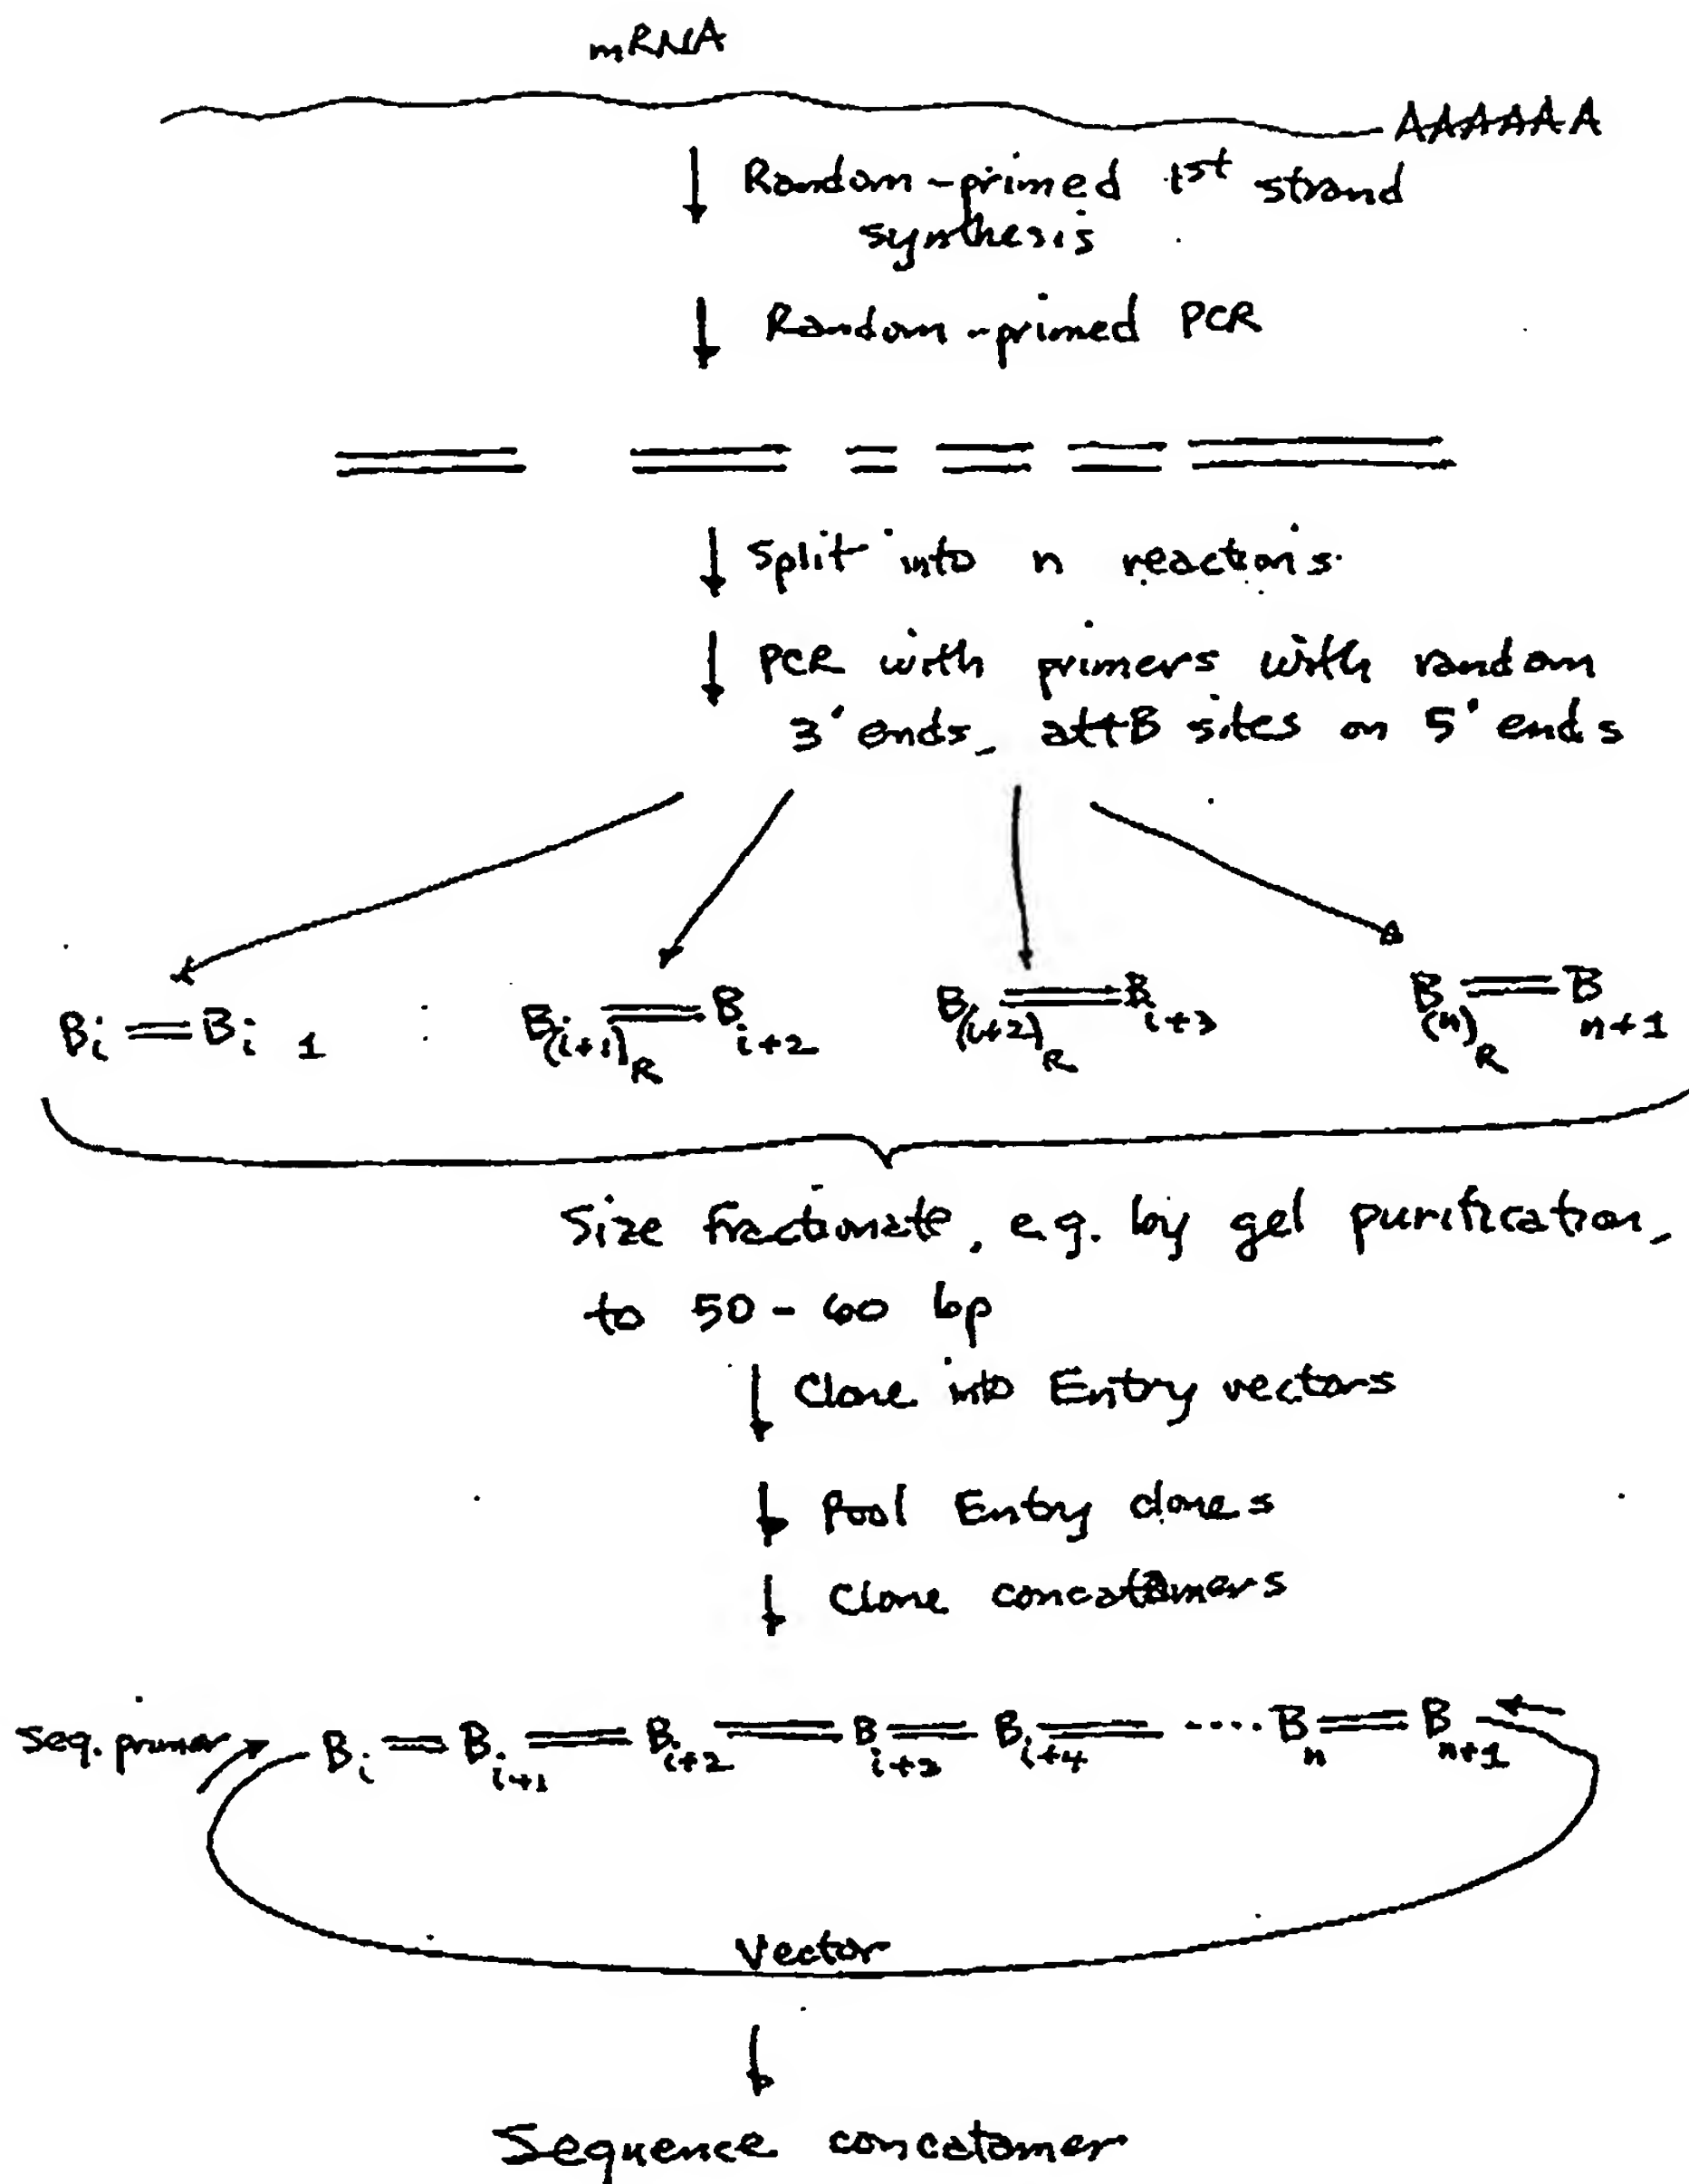 mRNA
AAAAAA
Random-primed 1st strand
synthesis
Random-primed PCR
Split into n reactions
PCR with primers with random
3' ends, attB sites on 5' ends
Bi B i 1 B(i+1)R B i+2 B(i+2)R B i+3 B(n)R B n+1
Size fractionate, e.g. by gel purification,
to 50-60 bp
Clone into Entry vectors
Pool Entry clones
Clone concatamers
Seq. primer Bi B i+1 B i+2 B i+3 B i+4 .... B n B n+1
Vector
Sequence concatamer